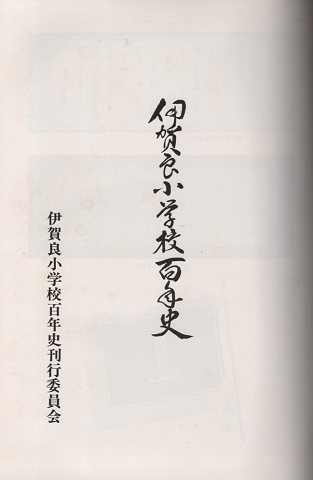 伊賀良小学校百年史
伊賀良小学校百年史刊行委員会